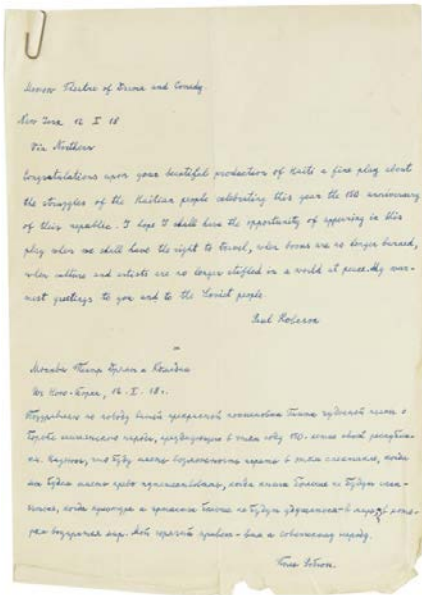 Moscow Theatre of Drama and Comedy.
New York 16 I 18
Via Northern
Congratulations upon your beautiful production of Haiti a fine play about
the struggles of the Haitian people celebrating this year the 150 anniversary
of their republic. I hope I shall have the opportunity of appearing in this
play when we shall have the right to travel, when books are no longer burned,
when culture and artists are no longer stifled in a world at peace. My war-
mest greetings to you and to the Soviet people.
Paul Robeson
Москва Театр Драмы и Комедии
Из Нью-Йорка, 16. I. 18.
Поздравляю по поводу вашей прекрасной постановки Гаити чудесной пьесы о
борьбе народа, празднующего в этом году 150-летие своей республи-
ки. Надеюсь, что буду иметь возможность играть в этом спектакле, когда
мы будем иметь право путешествовать, когда книги больше не будут
когда культура и артисты больше не будут
мир. Мой горячий привет - вам и советскому народу.
Поль Робсон.